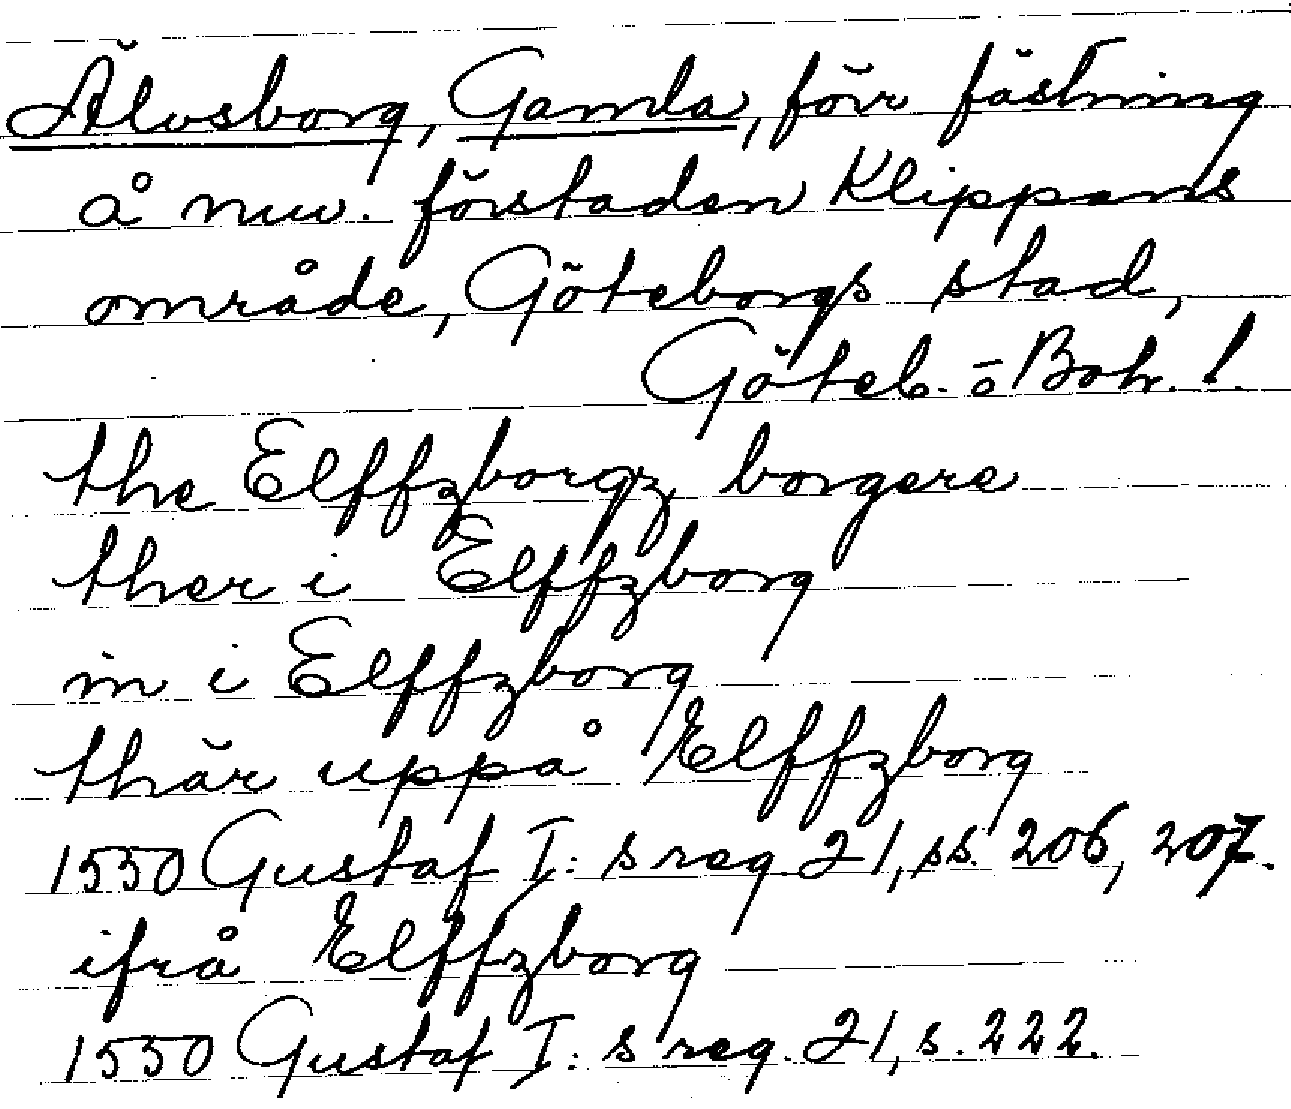 Älvsborg, Gamla, förr fästning
å nuv. förstaden Klippans
område, Göteborgs stad,
Göteb. o Boh. l.
the Elffzborgz borgere
ther i Elffzborg
in i Elffzborg
thär uppå Elffzborg
1550 Gustaf I: s reg 21, ss. 206, 207.
ifrå Elffzborg
1550 Gustaf I: s reg. 21, s. 222.